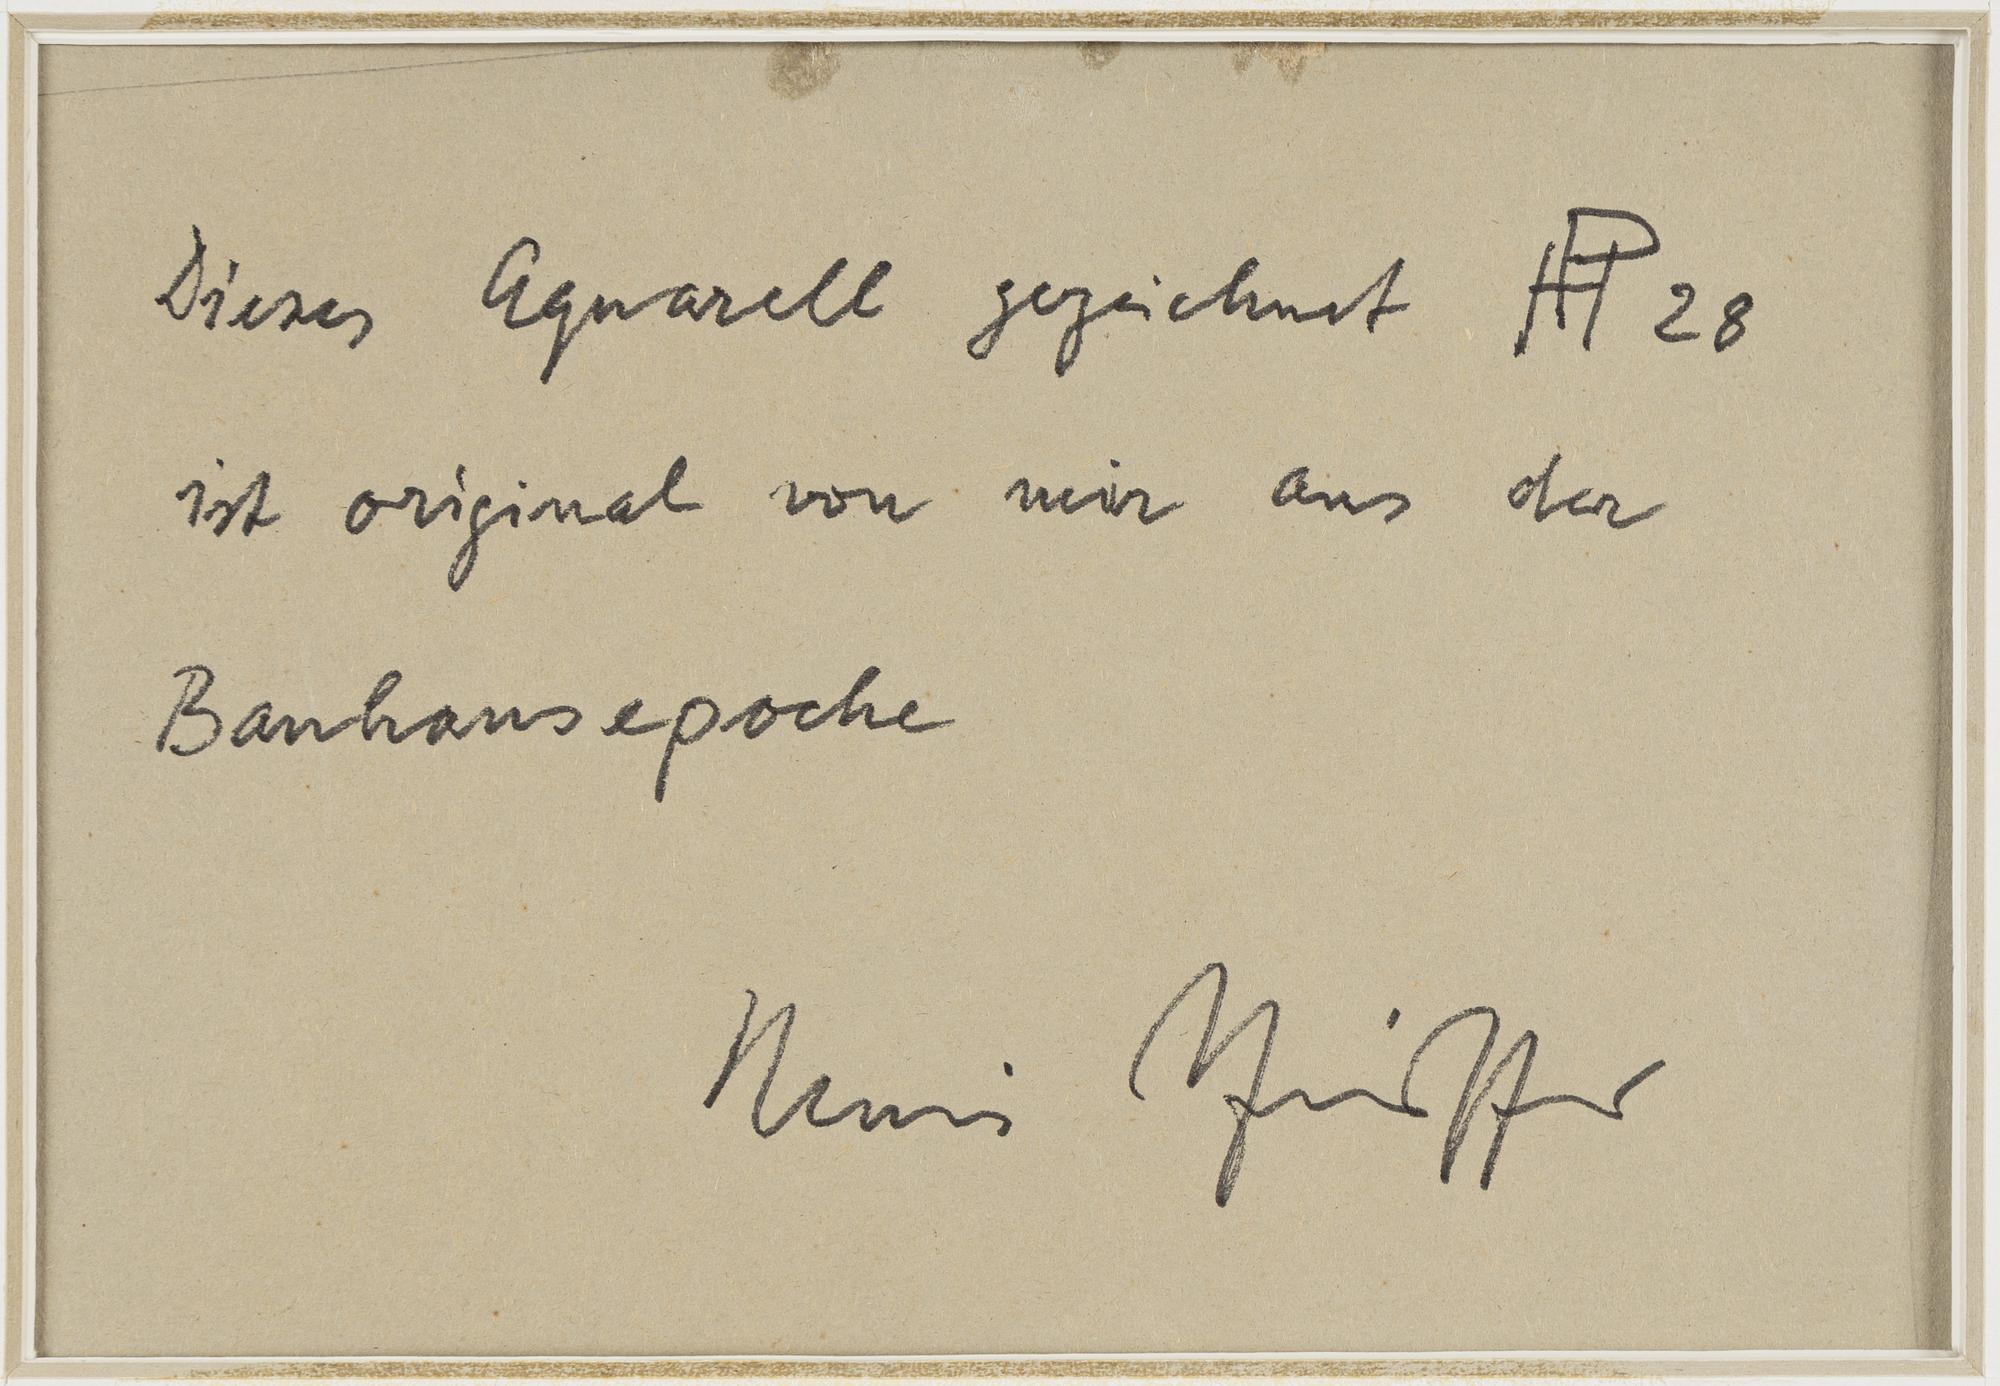 Dieses Aquarell gezeichnet HP 28
ist original von mir aus der
Bauhausepoche
Henris Pfeiffer